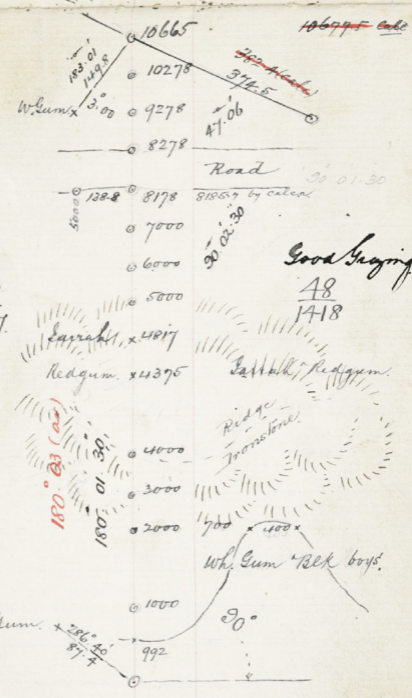 10665
10677.5 Calc
183.01
149.8
10278
374.5
W. Gum
3.00
9278
47.06
8278
Road
90 01 30
5000
138.8
8178
8185.7 by calcn
7000
90.02.30
6000
Good Grazing
48
1418
5000
Jarrah
4817
Redgum
4375
Jarrah Redgum
Ridge
Ironstone
180° 03 (as)
180° 01' 30"
4000
3000
2000
700
400
Wh. Gum & Blk boys.
1000
Gum.
286° 40'
87.4
992
90°